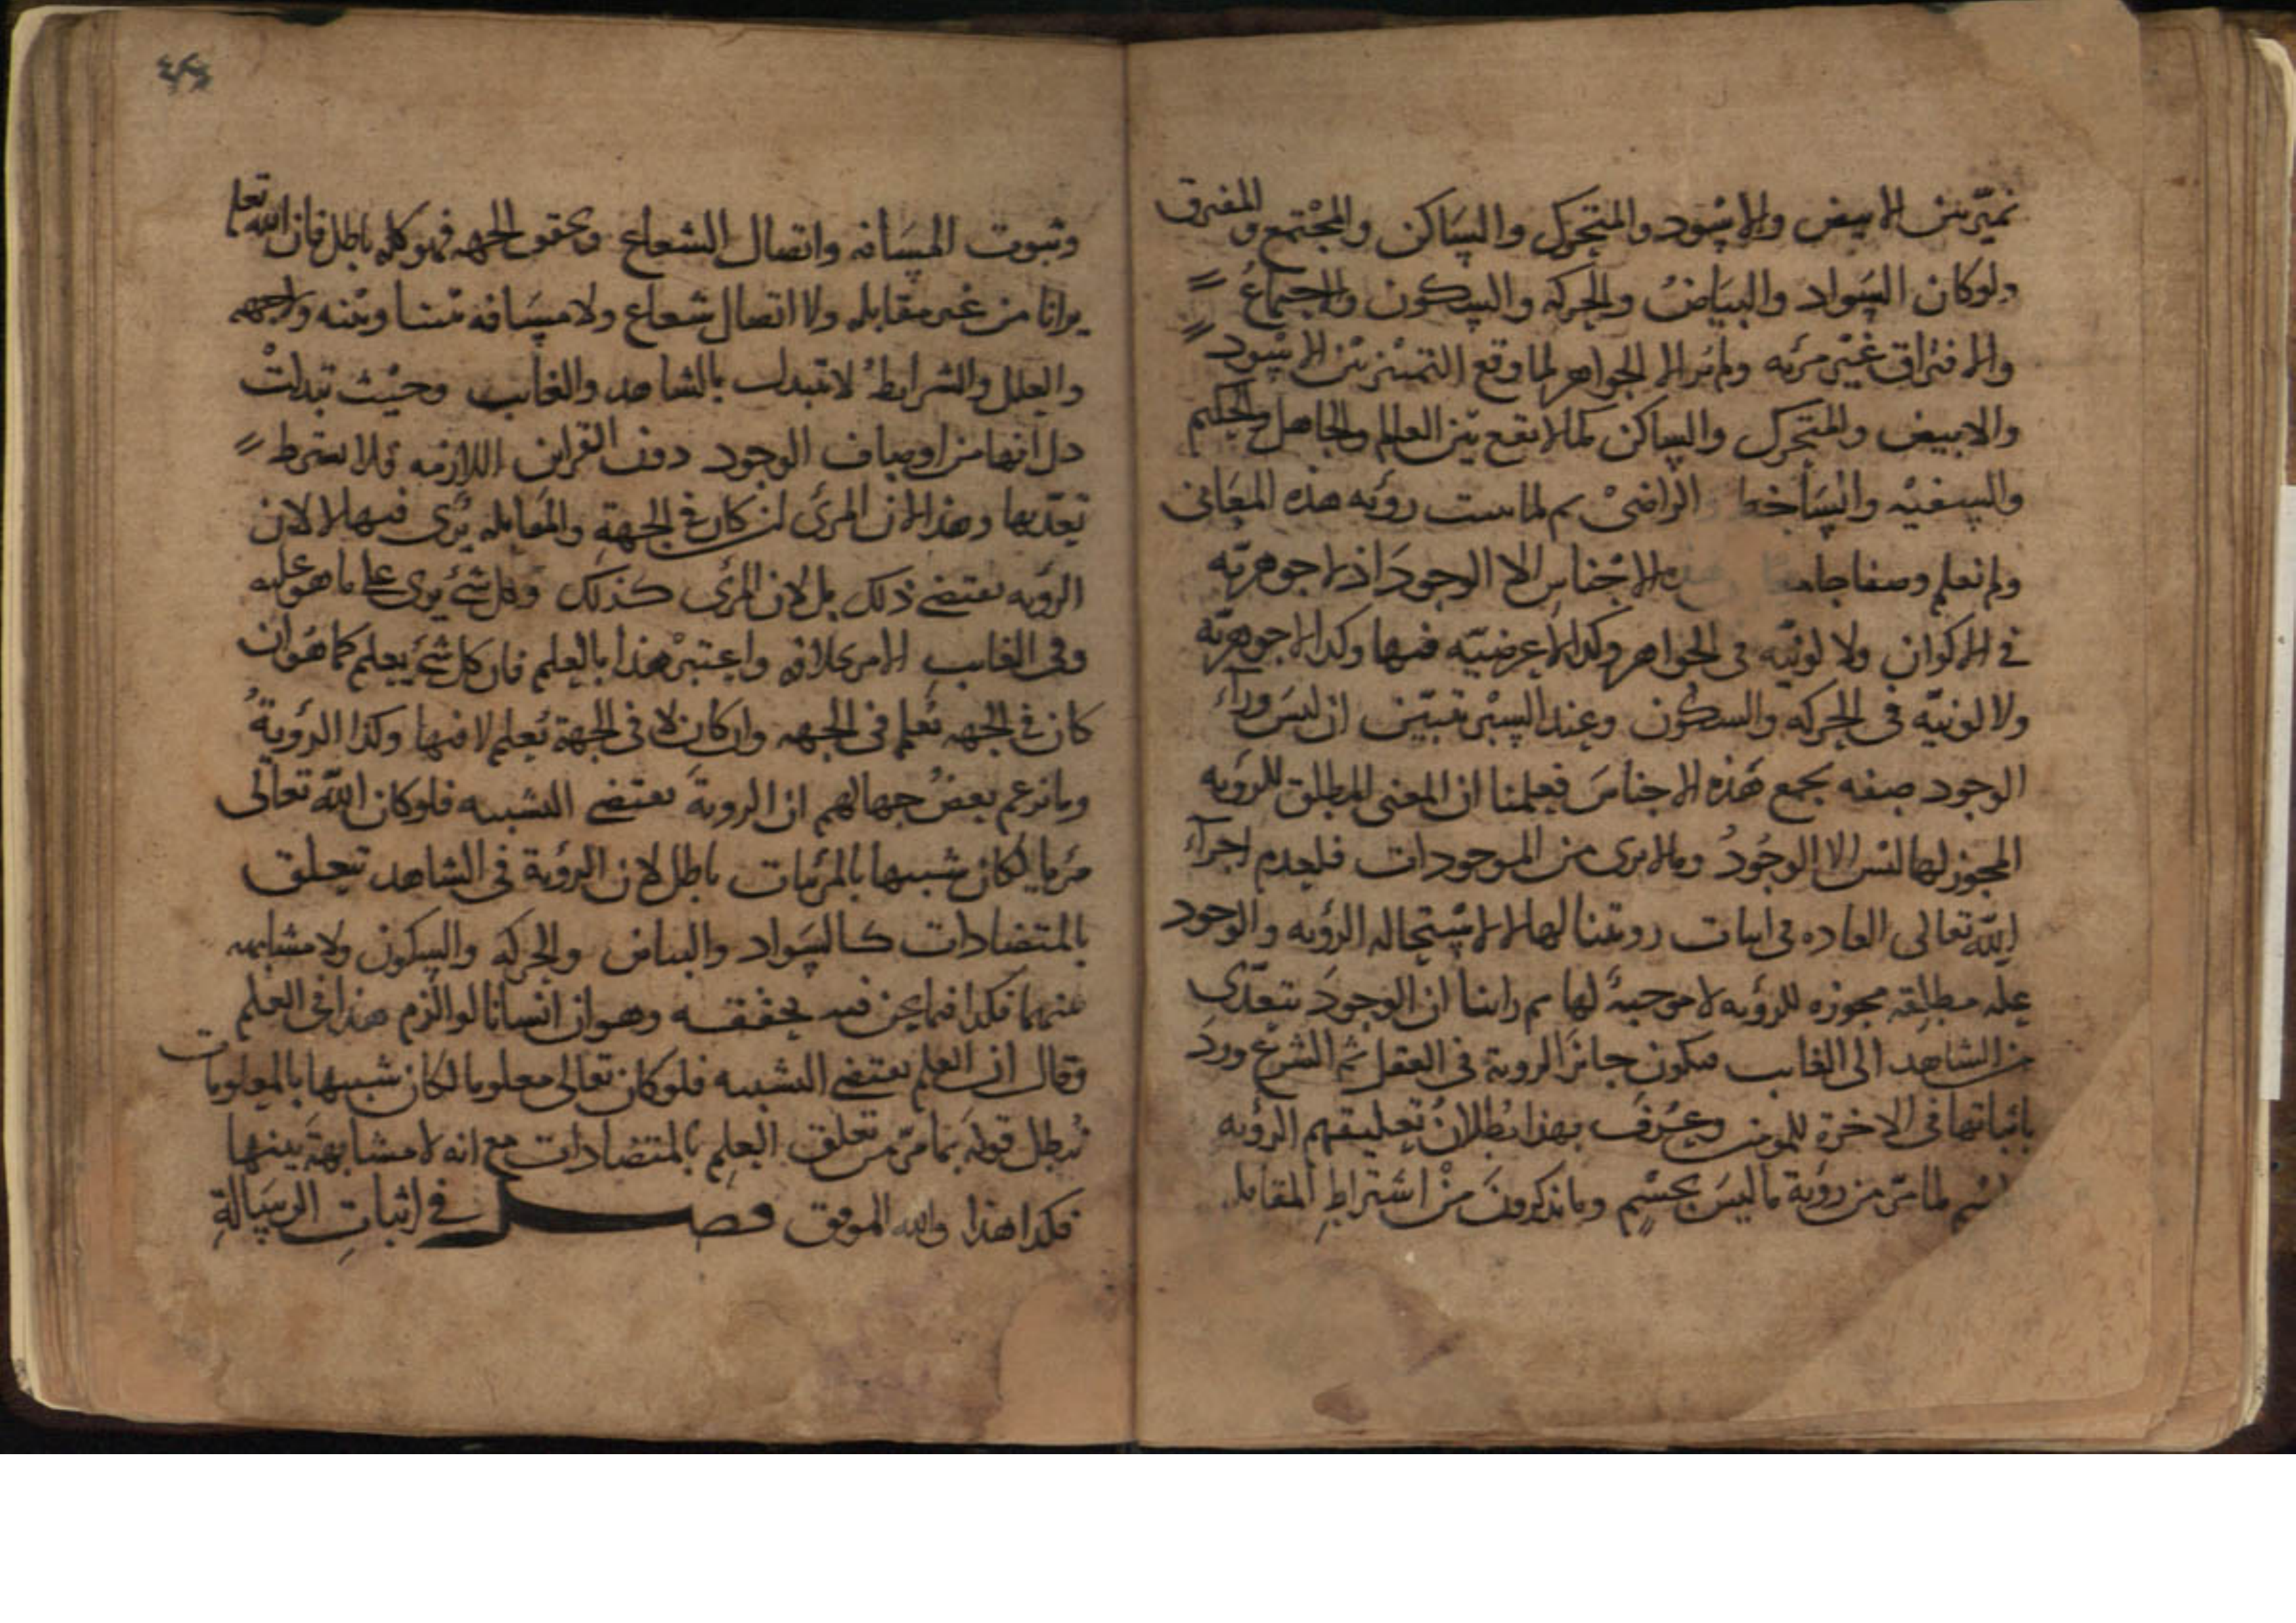 نميّز بين الابيض والاسود والمتحرك والساكن والمجتمع والمفترق
ولو كان السواد والبياض والحركه والسكون والاجتماع
والافتراق غير مرئيه ولم نر الا الجواهر لما وقع التمييز بين الاسود
والابيض والمتحرك والساكن كما لا يقع بين العالم والجاهل والحكيم
والسفيه والساخط والراضي ثم لما ثبت رؤيه هذه المعاني
ولم نعلم وصفا جامعا هذه الاجناس الا الوجود اذ لا جوهريّه
في الاكوان ولا لونيّه في الجواهر وكذا لا عرضيّه فيها وكذا لا جوهريّه
ولا لونيّه في الحركه والسكون وعند السبر تبيّن ان ليس ورآء
الوجود صفه تجمع هذه الاجناس فعلمنا ان المعنى المطلق للرؤيه
المجوز لها ليس الا الوجود وما لا يرى من الموجودات فلعدم اجرآء
الله تعالى العاده في اثبات رويتنا لها لا لاستحاله الرؤيه والوجود
عله مطلقه مجوزه للرؤيه لا موجبة لها ثم راينا ان الوجود يتعدّى
من الشاهد الى الغايب فيكون جائز الروية في العقل ثم الشرع ورد
باثباتها في الاخرة للمومنين وعرف بهذا بطلان تعليقهم الرؤيه
لما مرّ من رؤية ما ليس بجسم وما يذكرون من اشتراط المقابله
وثبوت المسافه واتصال الشعاع وتحقق الجهه فهو كله باطل فان الله تعالى
يرانا من غير مقابله ولا اتصال شعاع ولا مسافه بيننا وبينه ولا جهه
والعلل والشرايط لا تتبدل بالشاهد والغايب وحيث تبدلت
دل انها من اوصاف الوجود دون القراين اللازمه فلا يشترط
تعدّيها وهذا لان المرئي ان كان في الجهة والمقابله يرى فيها لا لان
الرؤيه تقتضي ذلك بل لان المرئي كذلك وكل شئ يرى على ما هو عليه
وفي الغايب الامر بخلافه واعتبر هذا بالعلم فان كل شئ يعلم كما هو ان
كان في الجهه تعلم في الجهه وان كان لا في الجهة يعلم لا فيها وكذا الرؤية
وما زعم بعض جهالهم ان الروية تقتضي التشبيه فلو كان الله تعالى
مرئيا لكان شبيها بالمرئيات باطل لان الرؤية في الشاهد تتعلق
بالمتضادات كالسواد والبياض والحركه والسكون ولا مشابهه
بينهما فكذا فيما نحن فيه يحققه وهو ان انسانا لو الزم هذا في العلم
وقال ان العلم يقتضي التشبيه فلو كان تعالى معلوما لكان شبيها بالمعلومات
يبطل قوله بما مرّ من تعلق العلم بالمتضادات مع انه لا مشابهة بينها
فكذا هذا والله الموفق فصل في اثبات الرسالة